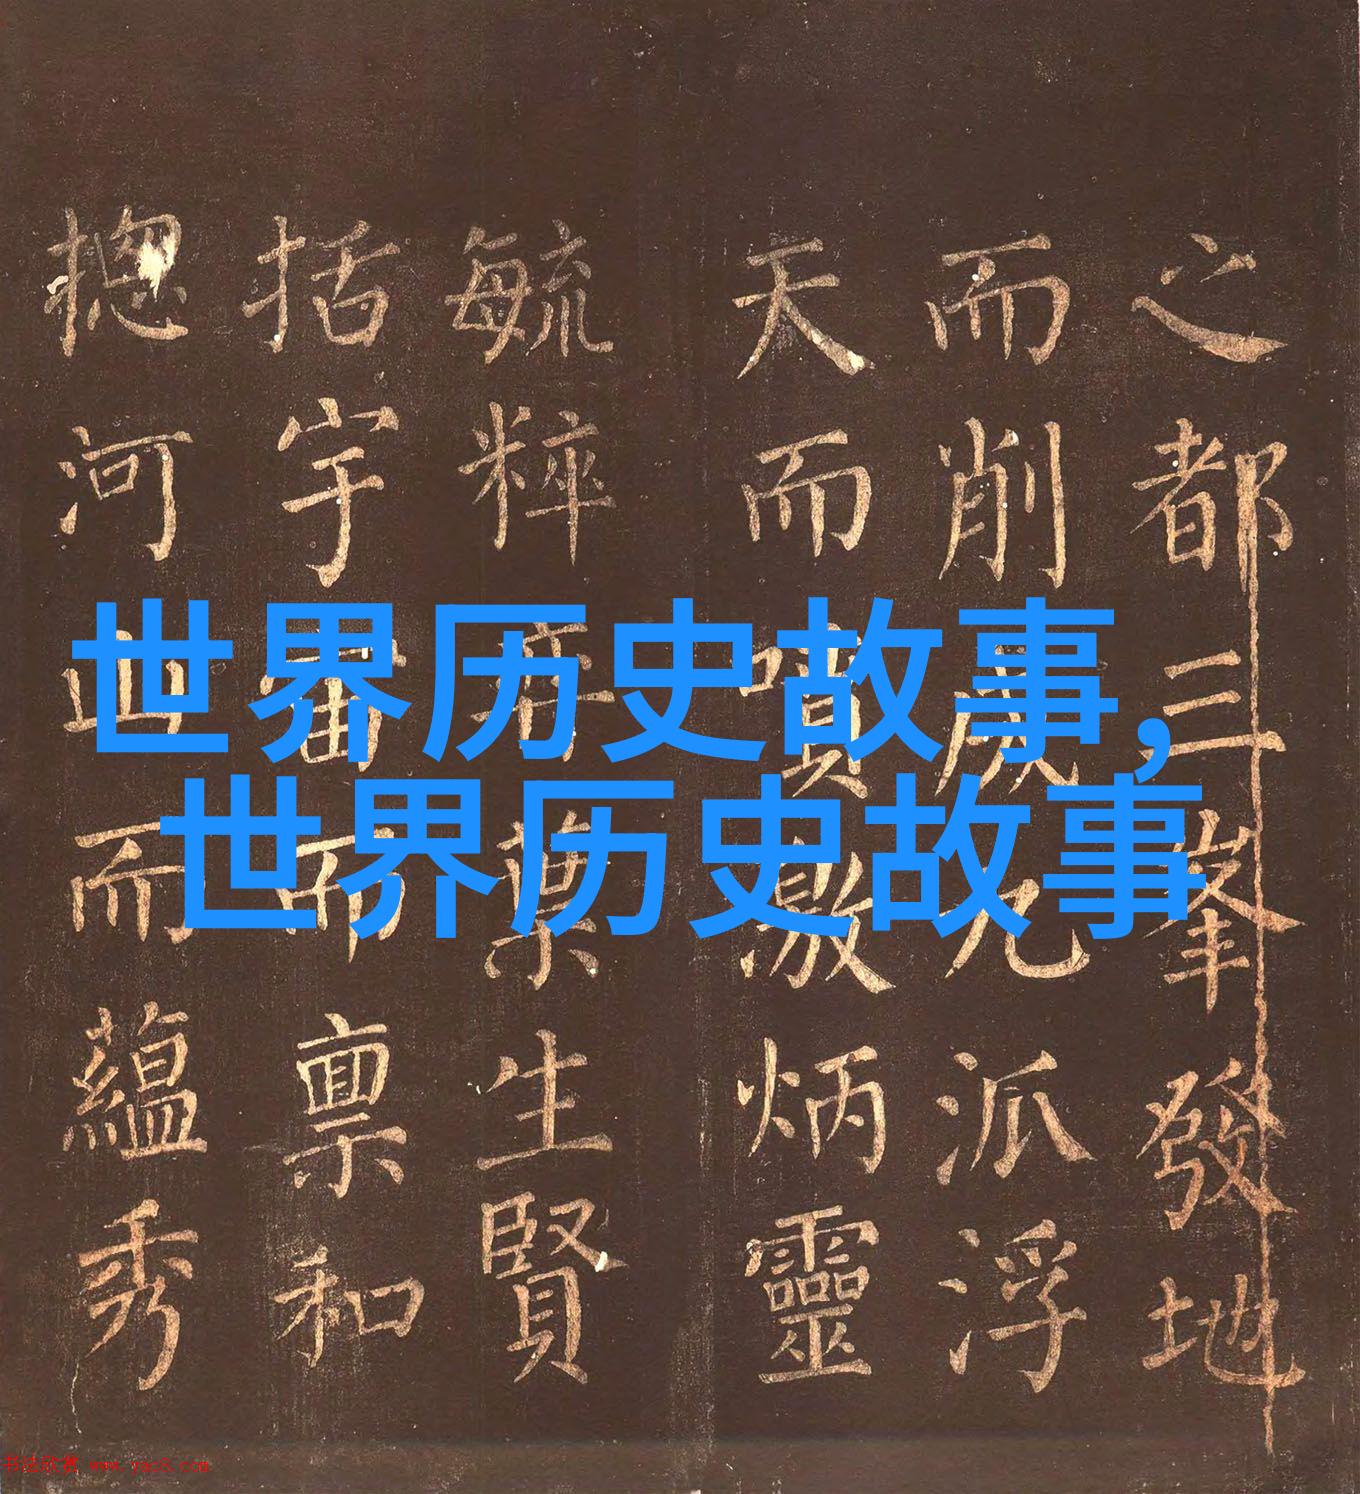 之都三峯發地
而削成九派浮
天而噴激炳靈
毓粹葉生賢
括宇宙而禀和
揔河而蘊秀
世界历史故事,
世界历史故事
书法欣赏 www.yac8.com